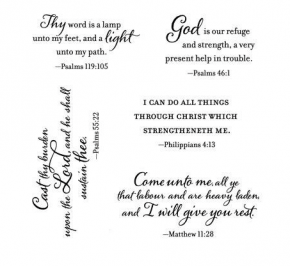 Thy word is a lamp
unto my feet, and a light
unto my path.
—Psalms 119:105
God is our refuge
and strength, a very
present help in trouble.
—Psalms 46:1
Cast thy burden
upon the Lord, and he shall
sustain thee.
—Psalms 55:22
I CAN DO ALL THINGS
THROUGH CHRIST WHICH
STRENGTHENETH ME.
—Philippians 4:13
Come unto me, all ye
that labour and are heavy laden,
and I will give you rest.
—Matthew 11:28